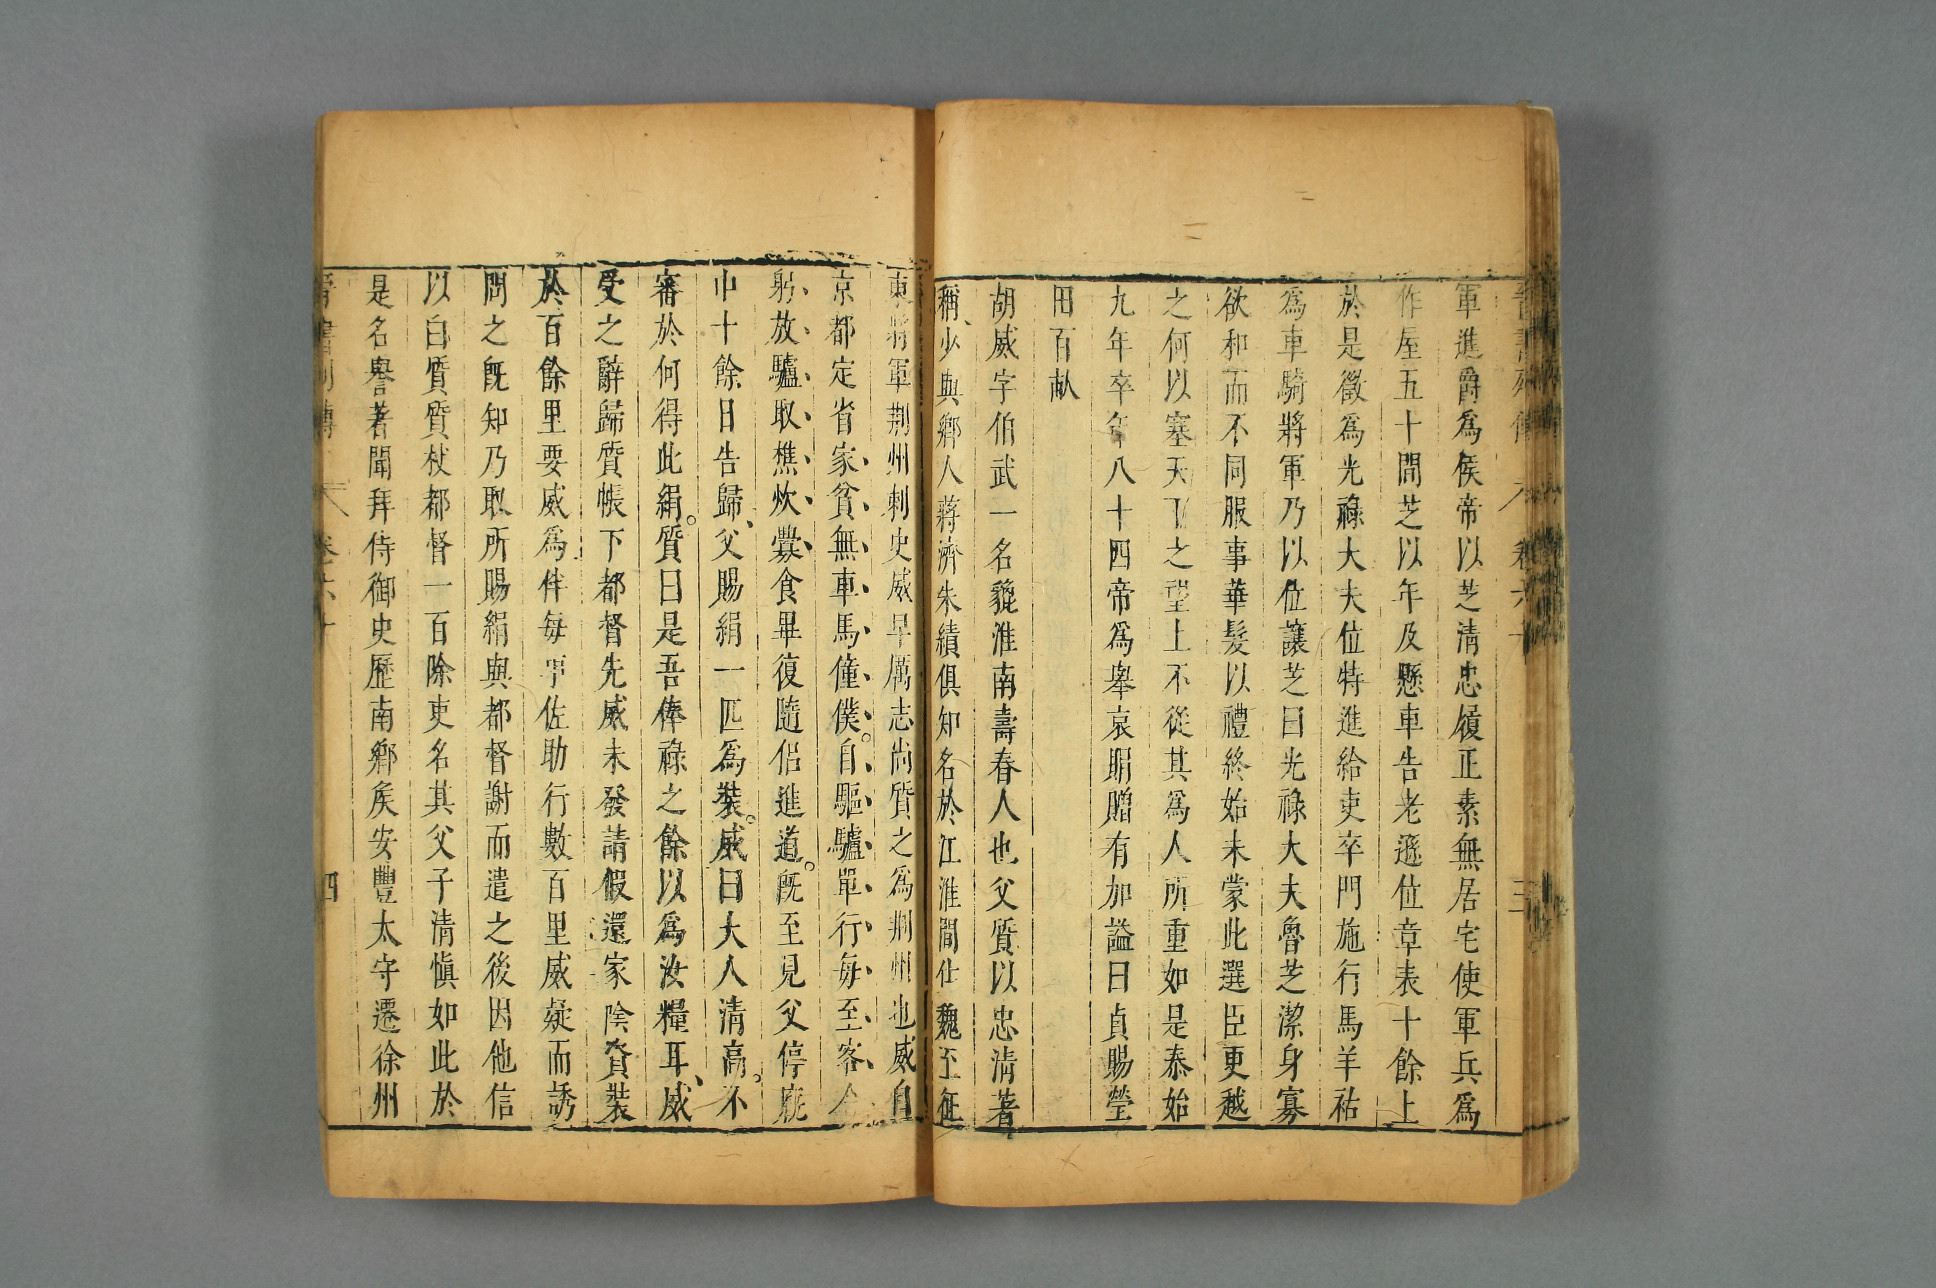 軍進爵爲侯帝以芝清忠履正素無居宅使軍兵爲
作屋五十間芝以年及懸車告老遜位章表十餘上
於是徵爲光祿大夫位特進給吏卒門施行馬羊祜
爲車騎將軍乃以位讓芝曰光祿大夫魯芝潔身寡
欲和而不同服事華髮以禮終始未蒙此選臣更越
之何以塞天下之望上不從其爲人所重如是泰始
九年卒年八十四帝爲舉哀賵贈有加謚曰貞賜塋
田百畝
胡威字伯武一名貔淮南壽春人也父質以忠清著
稱少與鄉人蔣濟朱績俱知名於江淮間仕魏至征
東將軍荆州刺史威早厲志尚質之爲荆州也威自
京都定省家貧無車馬僮僕自驅驢單行每至客舍
躬放驢取樵炊爨食畢復隨侶進道既至見父停廐
中十餘日告歸父賜絹一匹爲裝威曰大人清高不
審於何得此絹質曰是吾俸祿之餘以爲汝糧耳威
受之辭歸質帳下都督先威未發請假還家陰資裝
於百餘里要威爲伴每事佐助行數百里威疑而誘
問之既知乃取所賜絹與都督謝而遣之後因他信
以白質質杖都督一百除吏名其父子清愼如此於
是名譽著聞拜侍御史歷南鄉侯安豐太守遷徐州
晉書列傳 卷六十 四